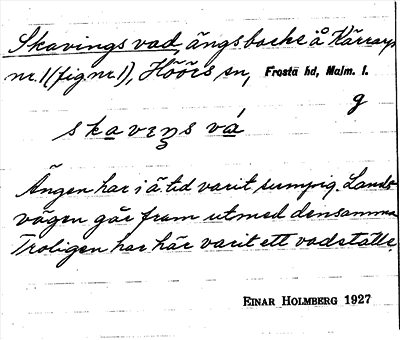 Skavings vad, ängsbacke å Kärrarp
nr. 1 (fig nr. 1), Höörs sn, Frosta hd, Malm. l.
g
skavıŋs vá
Ängen har i ä. tid varit sumpig. Lands-
vägen går fram utmed densamma
Troligen har här varit ett vadställe.
EINAR HOLMBERG 1927